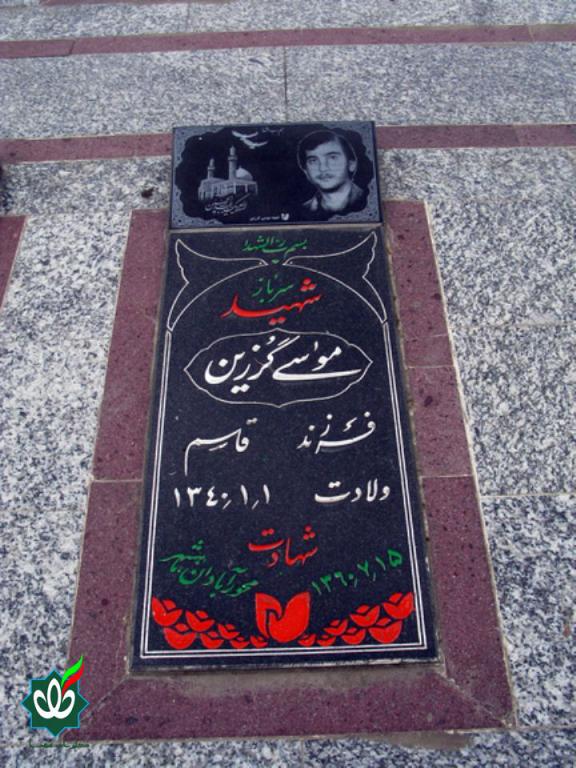 بسم رب الشهدا
سرباز
شهید
موسی گزرین
فرزند قاسم
ولادت ۱۳۴۰٫۱٫۱
شهادت
۱۳۶۰٫۷٫۱۵
محور آبادان ماهشهر